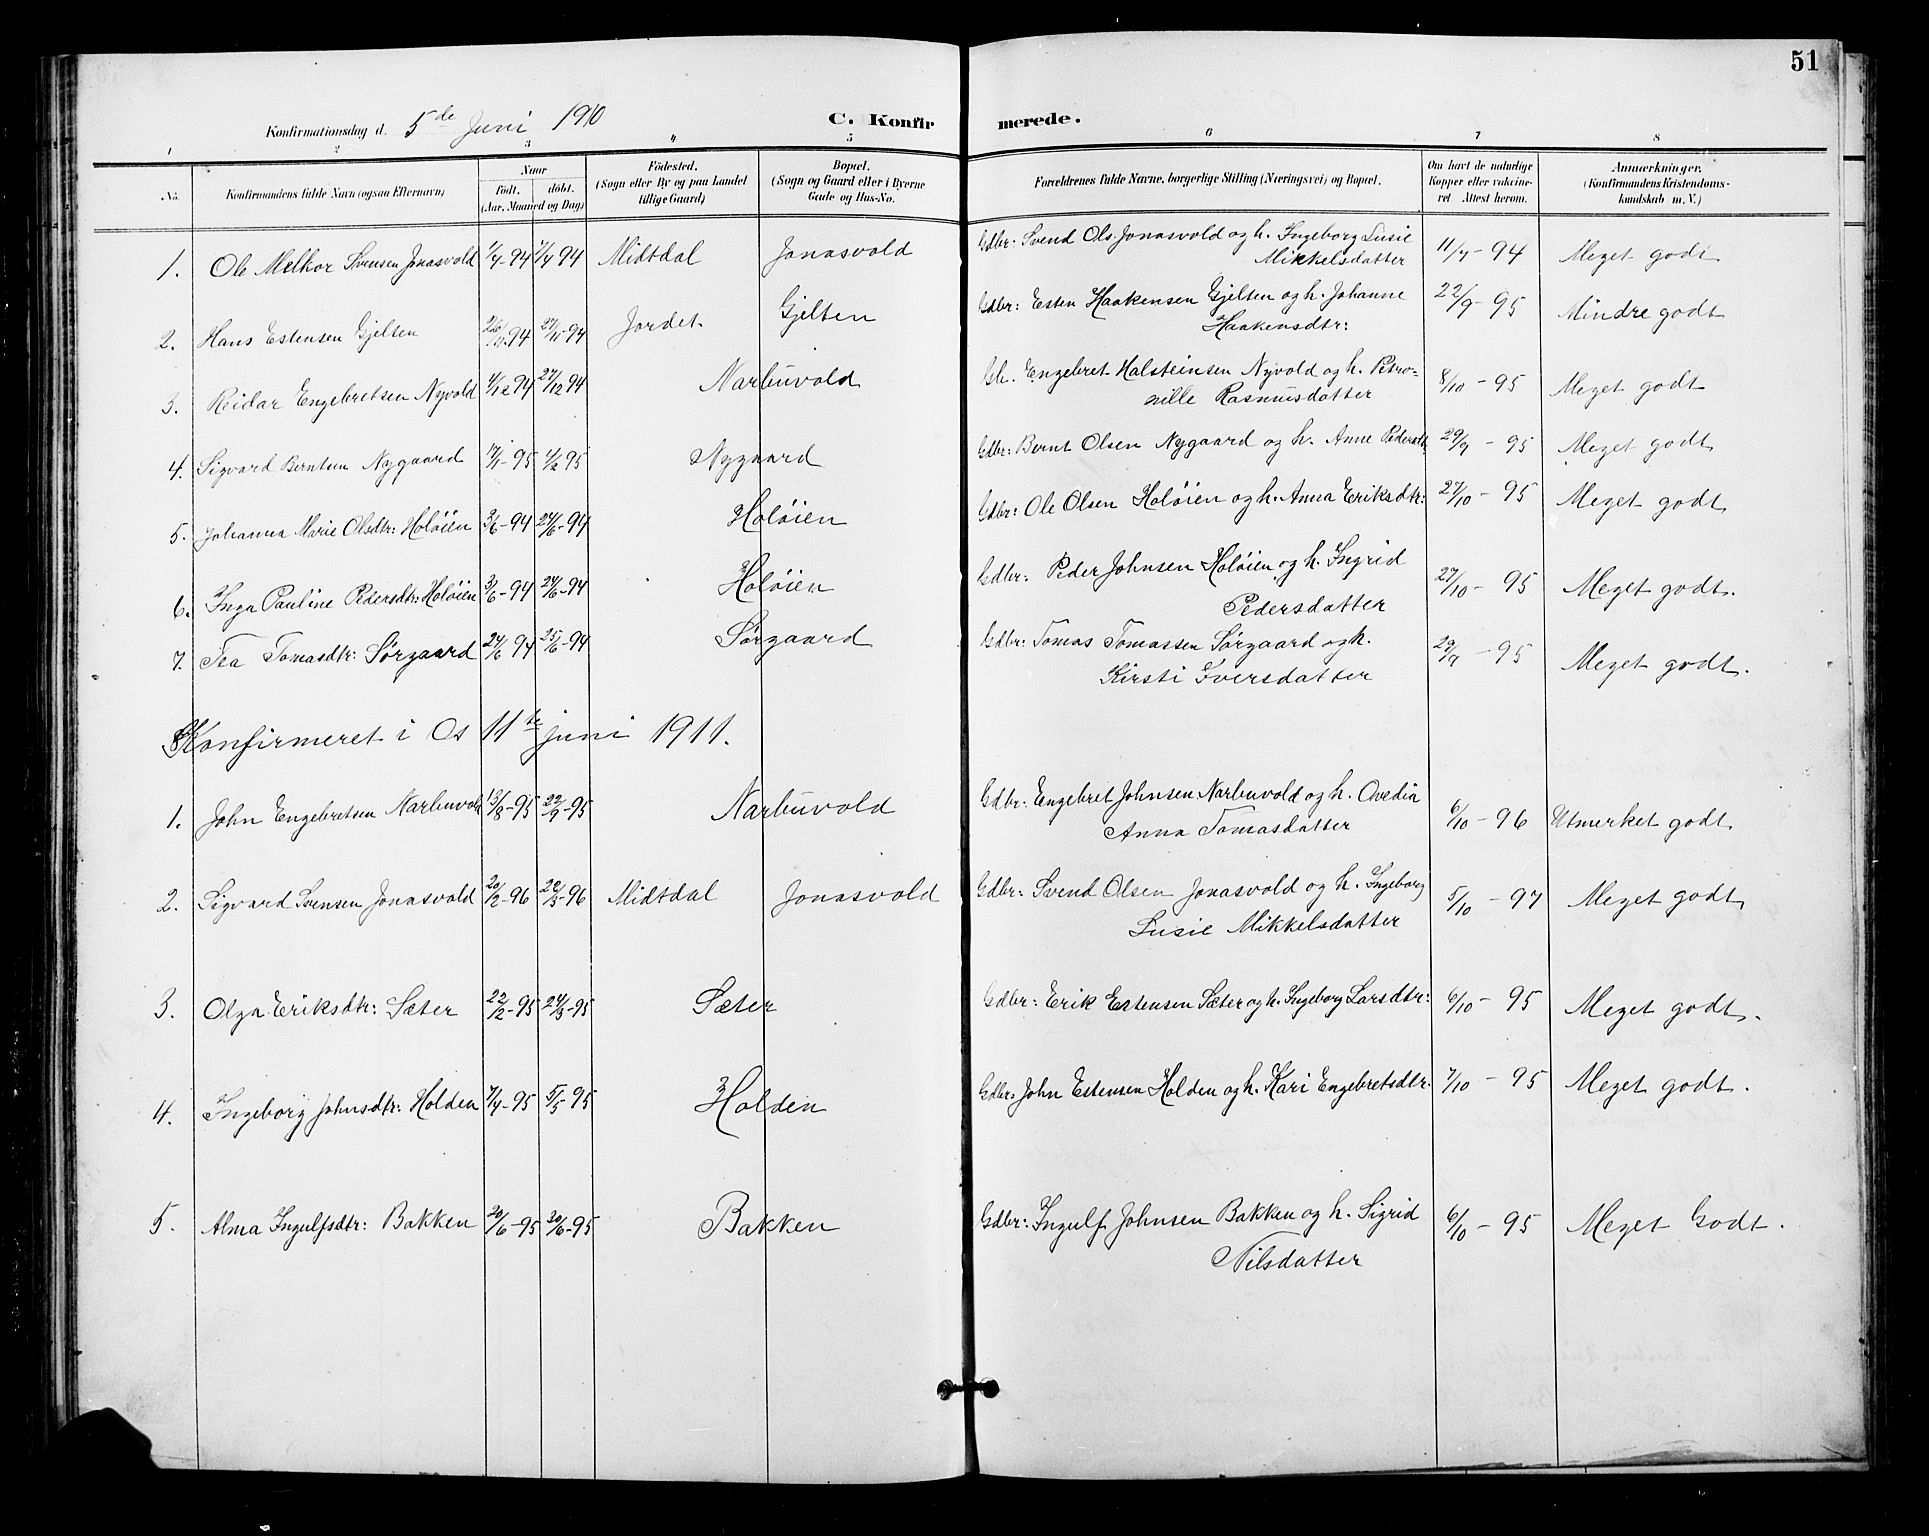 51
Konfirmationsdag d. 5de Juni 1910
C. Konfirmerede.
1 2 3 4 5 6 7 8
No. Konfirmandens fulde Navn (ogsaa Efternavn) Naar født. døbt. (Aar, Maaned og Dag) Fødested. (Sogn eller By og paa Landet tillige Gaard) Bopæl. (Sogn og Gaard eller i Byerne Gade og Hus-No. Forældrenes fulde Navne, borgerlige Stilling (Næringsvei) og Bopæl. Om havt de naturlige Kopper eller vakcineret Attest herom. Anmærkninger. (Konfirmandens Kristendomskundskab m. V.)
1. Ole Melkor Svensen Jonasvold 1/4-94 1/4 94 Midtdal Jonasvold Gdbr: Svend Ols. Jonasvold og h. Ingeborg Lusie Mikkelsdatter 11/7-94 Meget godt
2. Hans Estensen Gjelten 26/11-94 27/11-94 Jordet Gjelten Gdbr: Esten Haakensen Gjelten og h. Johanne Haakensdtr: 22/9-95 Mindre godt
3. Reidar Engebretsen Nyvold 4/12 94 27/12 94 Narbuvold Gb. Engebret Halsteinsen Nyvold og h. Petronille Rasmusdatter 8/10-95 Meget godt
4. Sigvard Berntsen Nygaard 17/1-95 4/2 95 Nygaard Gdbr: Bernt Olsen Nygaard og h. Anne Pedersdtr 29/9-95 Meget godt
5. Johanna Marie Olsdtr: Holøien 3/6-94 24/6-94 Holøien Gdbr: Ole Olsen Holøien og h. Anna Eriksdtr: 27/10-95 Meget godt
6. Inga Pauline Pedersdtr: Holøien 3/6-94 24/6-94 Holøien Gdbr: Peder Johnsen Holøien og h. Ingrid Pedersdatter 27/10-95 Meget godt.
7. Tea Tomasdtr: Sørgaard 24/6 94 25/6-94 Sørgaard Gdbr: Tomas Tomassen Sørgaard og h. Kirsti Iversdatter 29/9-95 Meget godt.
Konfirmeret i Os 11te juni 1911.
1. John Engebretsen Narbuvold 13/8-95 22/9-95 Narbuvold Gdbr: Engebret Johnsen Narbuvold og h. Ovedia Anna Tomasdatter 6/10-96 Utmerket godt
2. Sigvard Svensen Jonasvold 20/2-96 22/3-96 Midtdal Jonasvold Gdbr: Svend Olsen Jonasvold og h. Ingeborg Lusie Mikkelsdatter 5/10-97 Meget godt
3. Olga Eriksdtr: Sæter 22/2-95 24/3-95 Sæter Gdbr: Erik Estensen Sæter og h. Ingeborg Larsdtr: 6/10-95 Meget godt.
4. Ingeborg Johnsdtr: Holden 7/4-95 5/5 95 Holden Gdbr: John Estensen Holden og h. Kari Engebretsdtr. 7/10-95 Meget godt.
5. Alma Ingulfsdtr: Bakken 20/6-95 30/6-95 Bakken Gdbr: Ingulf Johnsen Bakken og h. Sigrid Nilsdatter 6/10-95 Meget Godt.